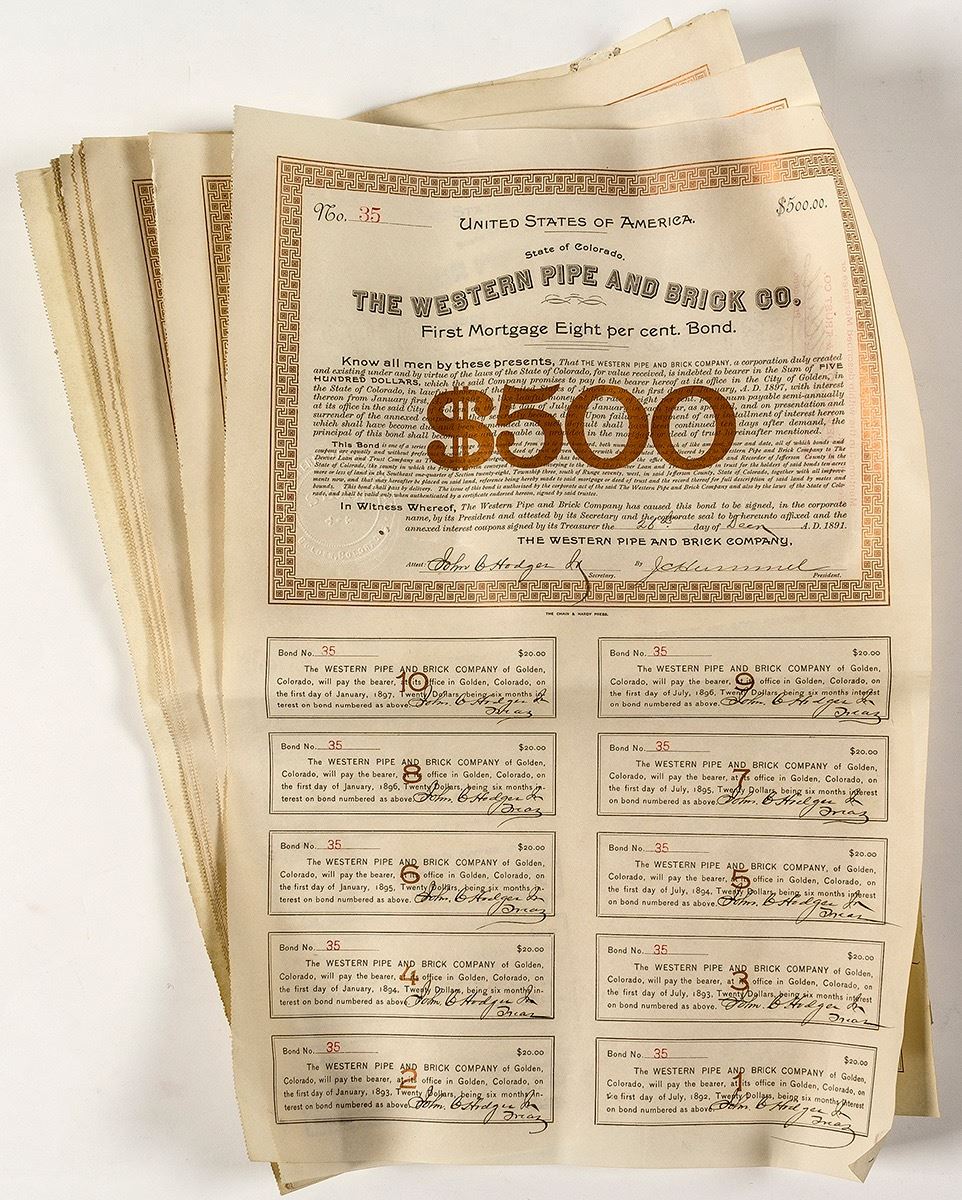 No. 35
$500.00.
UNITED STATES OF AMERICA.
State of Colorado.
THE WESTERN PIPE AND BRICK CO.
First Mortgage Eight per cent. Bond.
Know all men by these presents, That THE WESTERN PIPE AND BRICK COMPANY, a corporation duly created
and existing under and by virtue of the laws of the State of Colorado, for value received, is indebted to bearer in the Sum of FIVE
HUNDRED DOLLARS, which the said Company promises to pay to the bearer hereof at its office in the City of Golden, in
the State of Colorado, in the first day of January, A. D. 1897, with interest
thereon from January first, per annum payable semi-annually
at its office in the said City of July January and on presentation and
surrender of the annexed Upon failure installment of interest hereon
which shall have become continued ten days after demand, the
principal of this bond shall become in the mortgage deed of trust hereinafter mentioned.
$500
This Bond is one of a series of like and date, all of which bonds and
coupons are equally and without The Western Pipe and Brick Company to The
Denver Loan and Trust Company as and Recorder of Jefferson County in the
State of Colorado, the county in which the Loan and in trust for the holders of said bonds ten acres
more or less of land in the Southeast one-quarter of Section twenty-eight, Township three, south of Range seventy west, in said Jefferson County, State of Colorado, together with all improve-
ments now, and that may hereafter be placed on said land, reference being hereby made to said mortgage or deed of trust and the record thereof for full description of said land by metes and
bounds. This bond shall pass by delivery. The issue of this bond is authorized by the corporate act of the said The Western Pipe and Brick Company and also by the laws of the State of Colo-
rado, and shall be valid only when authenticated by a certificate endorsed hereon, signed by said trustee.
In Witness Whereof, The Western Pipe and Brick Company has caused this bond to be signed, in the corporate
name, by its President and attested by its Secretary and the corporate seal to be hereunto affixed and the
annexed interest coupons signed by its Treasurer the 26th day of Decm A. D. 1891.
THE WESTERN PIPE AND BRICK COMPANY,
Attest: John C Hodger Jr Secretary. By J C Hummel President.
THE CHAIN & HARDY PRESS.
Bond No. 35 $20.00
The WESTERN PIPE AND BRICK COMPANY of Golden,
Colorado, will pay the bearer, at its office in Golden, Colorado, on
the first day of January, 1897, Twenty Dollars, being six months in-
terest on bond numbered as above. John C Hodger Jr
Treas
10
Bond No. 35 $20.00
The WESTERN PIPE AND BRICK COMPANY of Golden,
Colorado, will pay the bearer, at its office in Golden, Colorado, on
the first day of July, 1896, Twenty Dollars, being six months interest
on bond numbered as above. John C Hodger Jr
Treas
9
Bond No. 35 $20.00
The WESTERN PIPE AND BRICK COMPANY of Golden,
Colorado, will pay the bearer, at its office in Golden, Colorado, on
the first day of January, 1896, Twenty Dollars, being six months in-
terest on bond numbered as above. John C Hodger Jr
Treas
8
Bond No. 35 $20.00
The WESTERN PIPE AND BRICK COMPANY of Golden,
Colorado, will pay the bearer, at its office in Golden, Colorado, on
the first day of July, 1895, Twenty Dollars, being six months interest
on bond numbered as above. John C Hodger Jr
Treas
7
Bond No. 35 $20.00
The WESTERN PIPE AND BRICK COMPANY of Golden,
Colorado, will pay the bearer, at its office in Golden, Colorado, on
the first day of January, 1895, Twenty Dollars, being six months in-
terest on bond numbered as above. John C Hodger Jr
Treas
6
Bond No. 35 $20.00
The WESTERN PIPE AND BRICK COMPANY, of Golden,
Colorado, will pay the bearer, at its office in Golden, Colorado, on
the first day of July, 1894, Twenty Dollars, being six months interest
on bond numbered as above. John C Hodger Jr
Treas
5
Bond No. 35 $20.00
The WESTERN PIPE AND BRICK COMPANY of Golden,
Colorado, will pay the bearer, at its office in Golden, Colorado, on
the first day of January, 1894, Twenty Dollars, being six months in-
terest on bond numbered as above. John C Hodger Jr
Treas
4
Bond No. 35 $20.00
The WESTERN PIPE AND BRICK COMPANY of Golden,
Colorado, will pay the bearer, at its office in Golden, Colorado, on
the first day of July, 1893, Twenty Dollars, being six months interest
on bond numbered as above. John C Hodger Jr
Treas
3
Bond No. 35 $20.00
The WESTERN PIPE AND BRICK COMPANY of Golden,
Colorado, will pay the bearer, at its office in Golden, Colorado, on
the first day of January, 1893, Twenty Dollars, being six months in-
terest on bond numbered as above. John C Hodger Jr
Treas
2
Bond No. 35 $20.00
The WESTERN PIPE AND BRICK COMPANY of Golden,
Colorado, will pay the bearer, at its office in Golden, Colorado, on
the first day of July, 1892, Twenty Dollars, being six months interest
on bond numbered as above. John C Hodger Jr
Treas
1